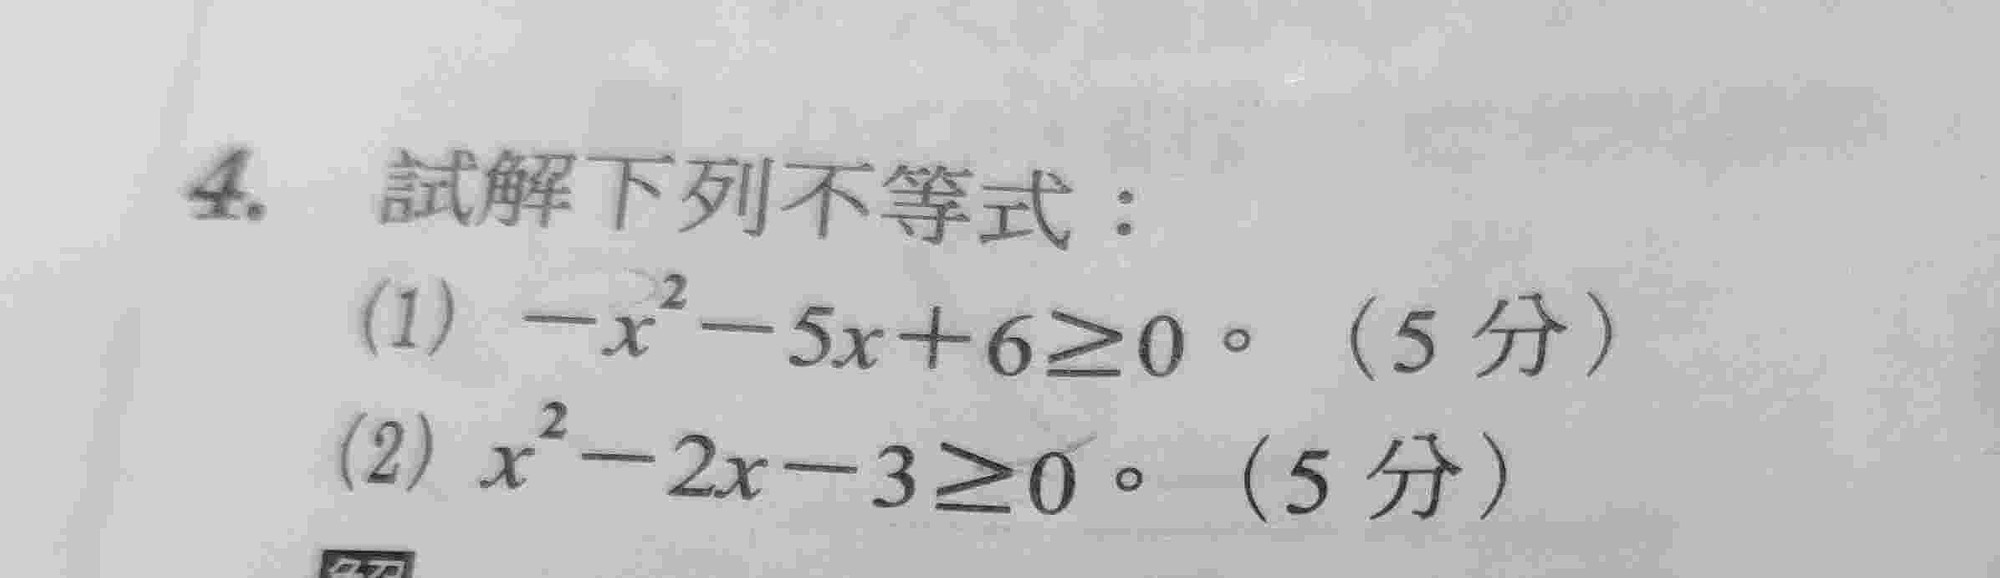 4. 試解下列不等式：
(1) －x²－5x＋6≥0。（5 分）
(2) x²－2x－3≥0。（5 分）